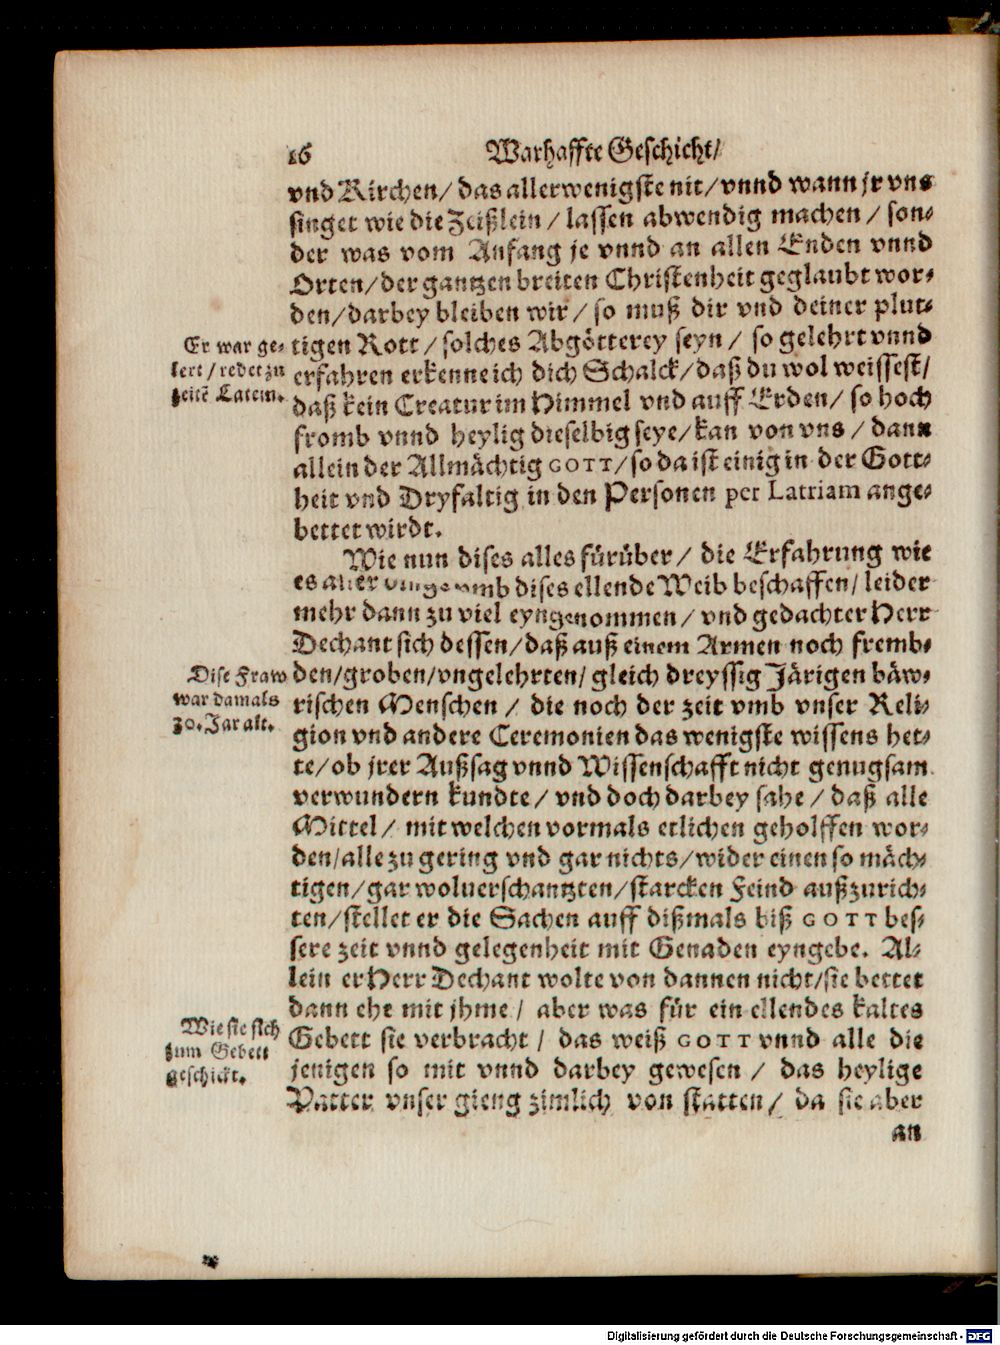 16 Warhaffte Geschicht/
vnd Kirchen/ das allerwenigste nit/ vnnd wann jr vns
singet wie die Zeißlein/ lassen abwendig machen/ son-
der was vom Anfang je vnnd an allen Enden vnnd
Orten/ der gantzen breiten Christenheit geglaubt wor-
den/ darbey bleiben wir/ so muß dir vnd deiner plut-
Er war ge-
lert/ redet zu
zeitẽ Latein.
tigen Rott/ solches Abgötterey seyn/ so gelehrt vnnd
erfahren erkenne ich dich Schalck/ daß du wol weissest/
daß kein Creatur im Himmel vnd auff Erden/ so hoch
fromb vnnd heylig dieselbig seye/ kan von vns/ dann
allein der Allmächtig GOTT/ so da ist einig in der Gott-
heit vnd Dryfaltig in den Personen per Latriam ange-
bettet wirdt.
Wie nun dises alles fürüber/ die Erfahrung wie
es aller vmb dises ellende Weib beschaffen/ leider
mehr dann zu viel eyngenommen/ vnd gedachter Herr
Dechant sich dessen/ daß auß einem Armen noch fremb-
Dise Fraw
war damals
30. Jar alt.
den/ groben/ vngelehrten/ gleich dreyssig Järigen bäw-
rischen Menschen/ die noch der zeit vmb vnser Reli-
gion vnd andere Ceremonien das wenigste wissens het-
te/ ob jrer Außsag vnnd Wissenschafft nicht genugsam
verwundern kundte/ vnd doch darbey sahe/ daß alle
Mittel/ mit welchen vormals etlichen geholffen wor-
den/ alle zu gering vnd gar nichts/ wider einen so mäch-
tigen/ gar woluerschantzten/ starcken Feind außzurich-
ten/ stellet er die Sachen auff dißmals biß GOTT bes-
sere zeit vnnd gelegenheit mit Genaden eyngebe. Al-
lein er Herr Dechant wolte von dannen nicht/ sie bettet
dann ehe mit jhme/ aber was für ein ellendes kaltes
Wie sie sich
zum Gebett
geschickt.
Gebett sie verbracht/ das weiß GOTT vnnd alle die
jenigen so mit vnnd darbey gewesen/ das heylige
Vatter vnser gieng zimlich von statten/ da sie aber
an
Digitalisierung gefördert durch die Deutsche Forschungsgemeinschaft - DFG